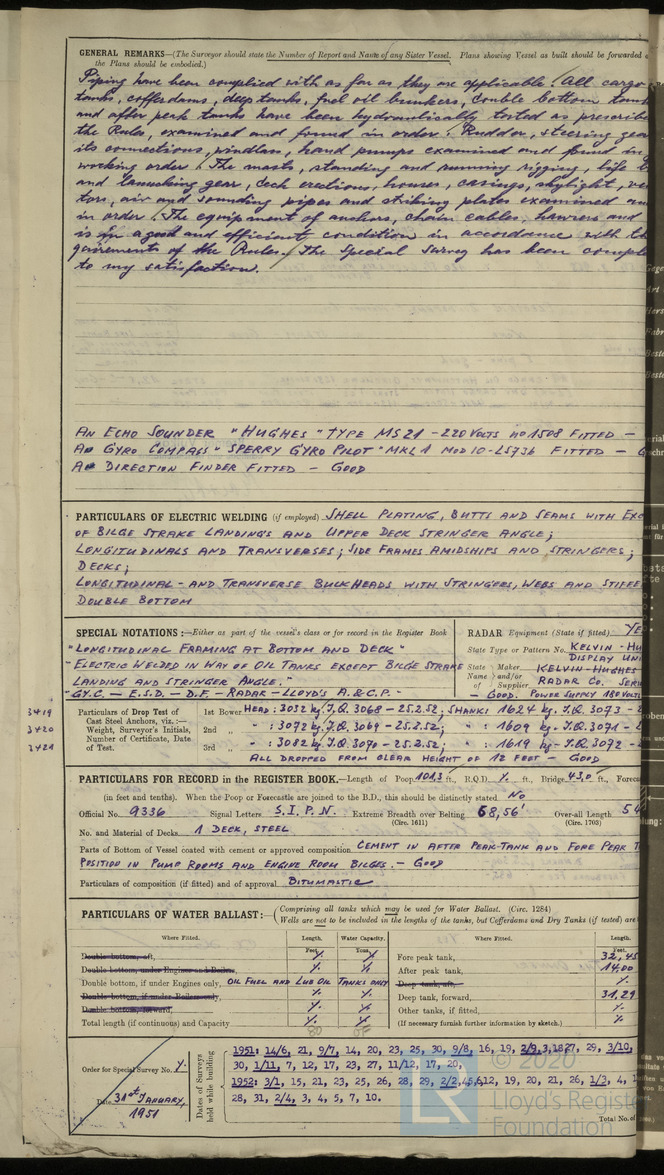 GENERAL REMARKS—(The Surveyor should state the Number of Report and Name of any Sister Vessel. Plans showing Vessel as built should be forwarded
the Plans should be embodied.)
Piping have been complied with as far as they are applicable. All cargo
tanks, cofferdams, deeptanks, fuel oil bunkers, double bottom tanks
and after peak tanks have been hydraulically tested as prescribe
the Rules, examined and found in order. Rudder, steering gear
its connections, windlass, hand pumps examined and found in
working order. The masts, standing and running rigging, life
and launching gear, deck erections, houses, casings, skylight,
tors, air and sounding pipes and striking plates examined
in order. The equipment of anchors, chain cables, hawsers and
is in a good and efficient condition in accordance with
quirements of the Rules. The Special Survey has been comple
to my satisfaction.
AN ECHO SOUNDER "HUGHES" TYPE MS21 - 220 VOLTS NO 1508 FITTED —
A GYRO COMPASS "SPERRY GYRO PILOT" MKL 1 MOD 10-L5736 FITTED — G
A DIRECTION FINDER FITTED — GOOD
PARTICULARS OF ELECTRIC WELDING (if employed) SHELL PLATING, BUTTS AND SEAMS WITH EXC
OF BILGE STRAKE LANDINGS AND UPPER DECK STRINGER ANGLE;
LONGITUDINALS AND TRANSVERSES; SIDE FRAMES AMIDSHIPS AND STRINGERS;
DECKS;
LONGITUDINAL - AND TRANSVERSE BUCKHEADS WITH STRINGERS, WEBS AND STIFFE
DOUBLE BOTTOM
SPECIAL NOTATIONS:—Either as part of the vessel's class or for record in the Register Book
"LONGITUDINAL FRAMING AT BOTTOM AND DECK"
"ELECTRIC WELDED IN WAY OF OIL TANKS EXCEPT BILGE STRAKE
LANDING AND STRINGER ANGLE."
"GY.C. — E.S.D. — D.F. — RADAR — LLOYD'S A.& C.P."
RADAR Equipment (State if fitted) YES
State Type or Pattern No. KELVIN-HU
DISPLAY UNI
State Name and/or of Maker KELVIN-HUGHES
Supplier RADAR CO. SERI
— GOOD. POWER SUPPLY 180 VOLT
3419
3420
3421
Particulars of Drop Test of
Cast Steel Anchors, viz.:—
Weight, Surveyor's Initials,
Number of Certificate, Date
of Test.
1st Bower HEAD: 3032 kg. J.Q. 3068 - 25.2.52; SHANK: 1624 kg. J.Q. 3073 - 2
2nd " " : 3072 kg. J.Q. 3069 - 25.2.52; " : 1609 kg. J.Q. 3071 - 2
3rd " " : 3082 kg. J.Q. 3070 - 25.2.52; " : 1619 kg. J.Q. 3072 - 2
ALL DROPPED FROM CLEAR HEIGHT OF 12 FEET — GOOD
PARTICULARS FOR RECORD in the REGISTER BOOK.—Length of Poop 101,3 ft., R.Q.D. ⁒ ft., Bridge 43,0 ft., Forec
(in feet and tenths). When the Poop or Forecastle are joined to the B.D., this should be distinctly stated. No
Official No. 9336 Signal Letters S.I.P.N. Extreme Breadth over Belting 68,56' Over-all Length 5
(Circ. 1611) (Circ. 1703)
No. and Material of Decks 1 DECK, STEEL
Parts of Bottom of Vessel coated with cement or approved composition CEMENT IN AFTER PEAK-TANK AND FORE PEAK T
POSITION IN PUMP ROOMS AND ENGINE ROOM BILGES. — GOOD
Particulars of composition (if fitted) and of approval BITUMASTIC
PARTICULARS OF WATER BALLAST:— Comprising all tanks which may be used for Water Ballast. (Circ. 1284)
Wells are not to be included in the lengths of the tanks, but Cofferdams and Dry Tanks (if tested) are
Where Fitted. Length. Water Capacity. Where Fitted. Length.
Feet. Tons. Feet.
Double bottom, aft, ⁒ ⁒ Fore peak tank, 32,45
Double bottom, under Engines and Boilers, ⁒ ⁒ After peak tank, 14,00
Double bottom, if under Engines only, OIL FUEL AND LUB OIL TANKS ONLY Deep tank, aft, ⁒
Double bottom, if under Boilers only, ⁒ ⁒ Deep tank, forward, 31,29
Double bottom, forward, ⁒ ⁒ Other tanks, if fitted, ⁒
Total length (if continuous) and Capacity ⁒ ⁒ (If necessary furnish further information by sketch.) ⁒
Order for Special Survey No. ⁒
Date 31st JANUARY, 1951
Dates of Surveys held while building
1951: 14/6, 21, 9/7, 14, 20, 23, 25, 30, 9/8, 16, 19, 2/9, 3, 18, 27, 29, 3/10,
30, 1/11, 7, 12, 17, 23, 27, 11/12, 17, 20,
1952: 3/1, 15, 21, 23, 25, 26, 28, 29, 2/2, 4,5,6,12, 19, 20, 21, 26, 1/3, 4,
28, 31, 2/4, 3, 4, 5, 7, 10.
Total No. of
© 2020
LR
Lloyd's Register
Foundation